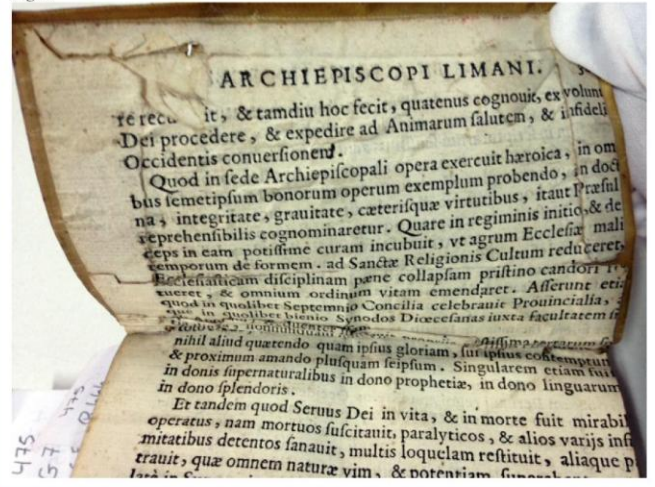 ARCHIEPISCOPI LIMANI.
it, & tamdiu hoc fecit, quatenus cognouit, ex volunt
Dei procedere, & expedire ad Animarum ſalutem, & infideli
Occidentis conuerſionem.
Quod in ſede Archiepiſcopali opera exercuit hæroica, in om
bus ſemetipſum bonorum operum exemplum probendo, in doct
na, integritate, grauitate, cæteriſquæ virtutibus, itaut Præſul
reprehenſibilis cognominaretur. Quare in regiminis initio, & de
ceps in eam potiſſimè curam incubuit, vt agrum Eccleſiæ mali
temporum deformem. ad Sanctæ Religionis Cultum reduceret,
Eccleſiaſticam diſciplinam pæne collapſam priſtino candori
tueret, & omnium ordinum vitam emendaret. Aſſerunt etia
quod in quolibet Septemnio Concilia celebrauit Prouincialia,
que in quolibet bienio Synodos Diœceſanas iuxta facultatem
nihil aliud quærendo quam ipſius gloriam, ſui ipſius contemptum
& proximum amando pluſquam ſeipſum. Singularem etiam fui
in donis ſupernaturalibus in dono prophetiæ, in dono linguarum
in dono ſplendoris.
Et tandem quod Seruus Dei in vita, & in morte fuit mirabil
operatus, nam mortuos ſuſcitauit, paralyticos, & alios varijs inf
mitatibus detentos ſanauit, multis loquelam reſtituit, aliaque p
trauit, quæ omnem naturæ vim, & potentiam
475